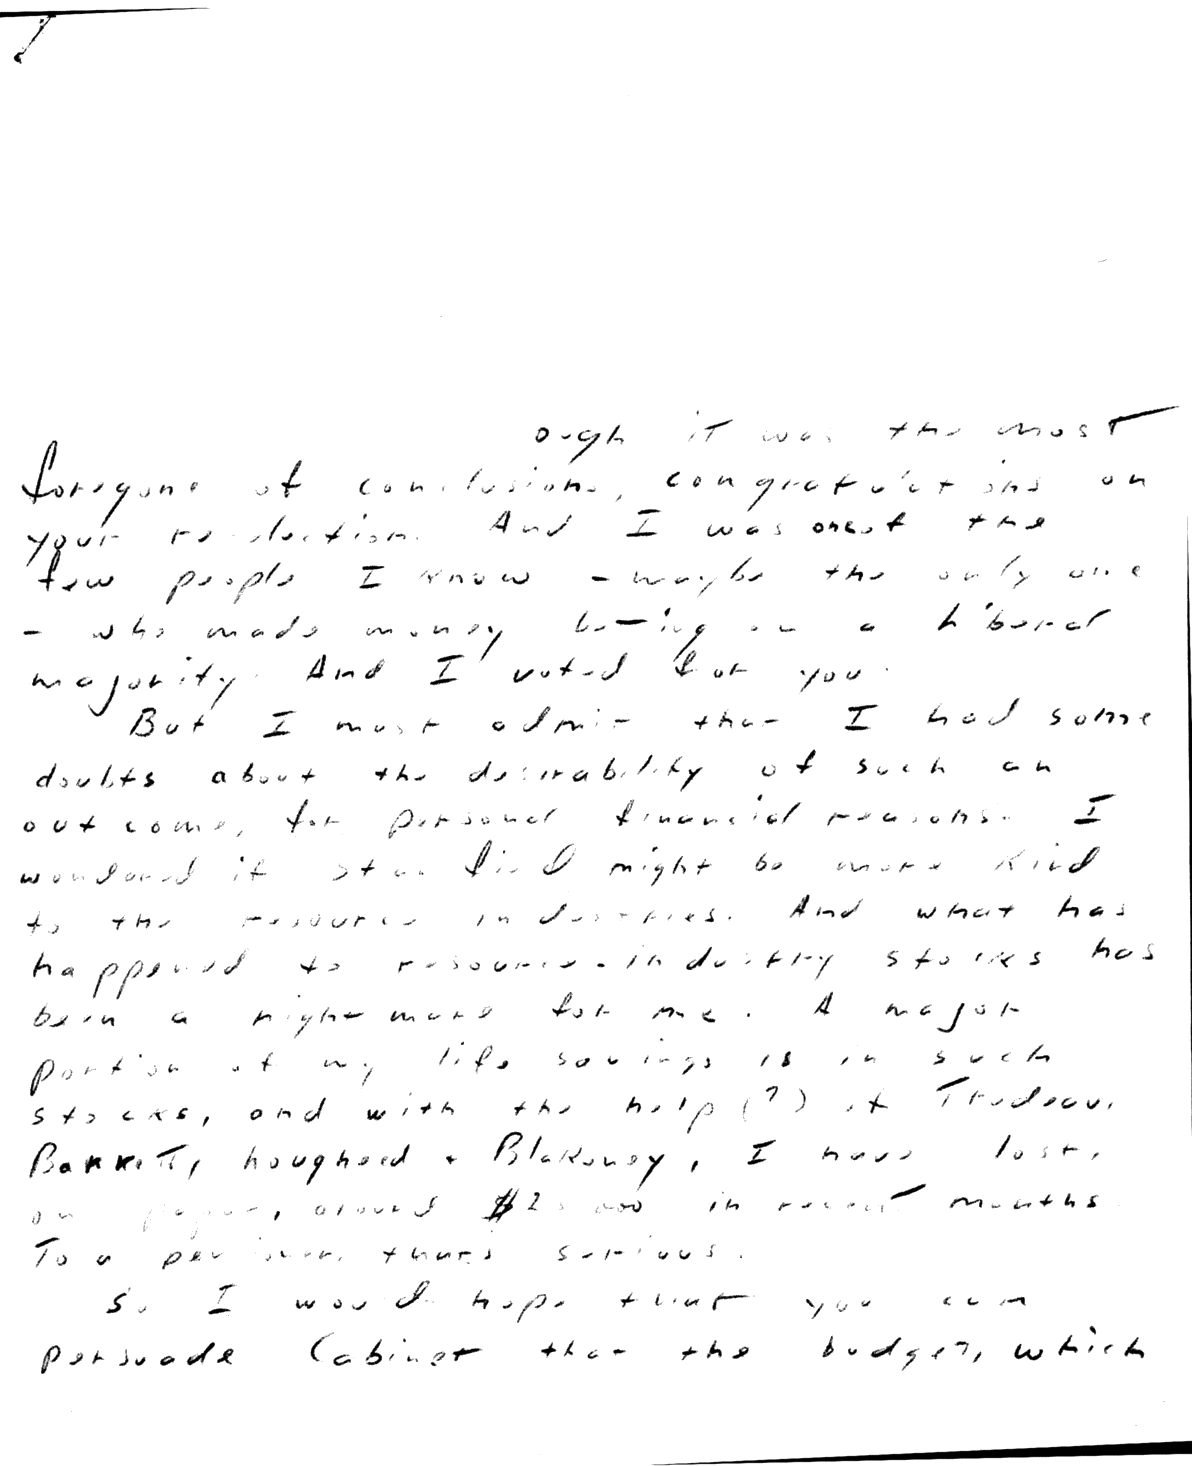 ough it was the most
foregone of conclusions, congratulations on
your re-election. And I was one of the
few people I know - maybe the only one
- who made money betting on a Liberal
majority. And I voted for you.
But I must admit that I had some
doubts about the desirability of such an
outcome, for personal financial reasons. I
wondered if Stanfield might be more kind
to the resource industries. And what has
happened to resource-industry stocks has
been a nightmare for me. A major
portion of my life savings is in such
stocks, and with the help (?) of Trudeau,
Barrett, Lougheed + Blakeney, I have lost,
on paper, around in recent months.
To a pensioner, that's serious.
So I would hope that you can
persuade Cabinet that the budget, which